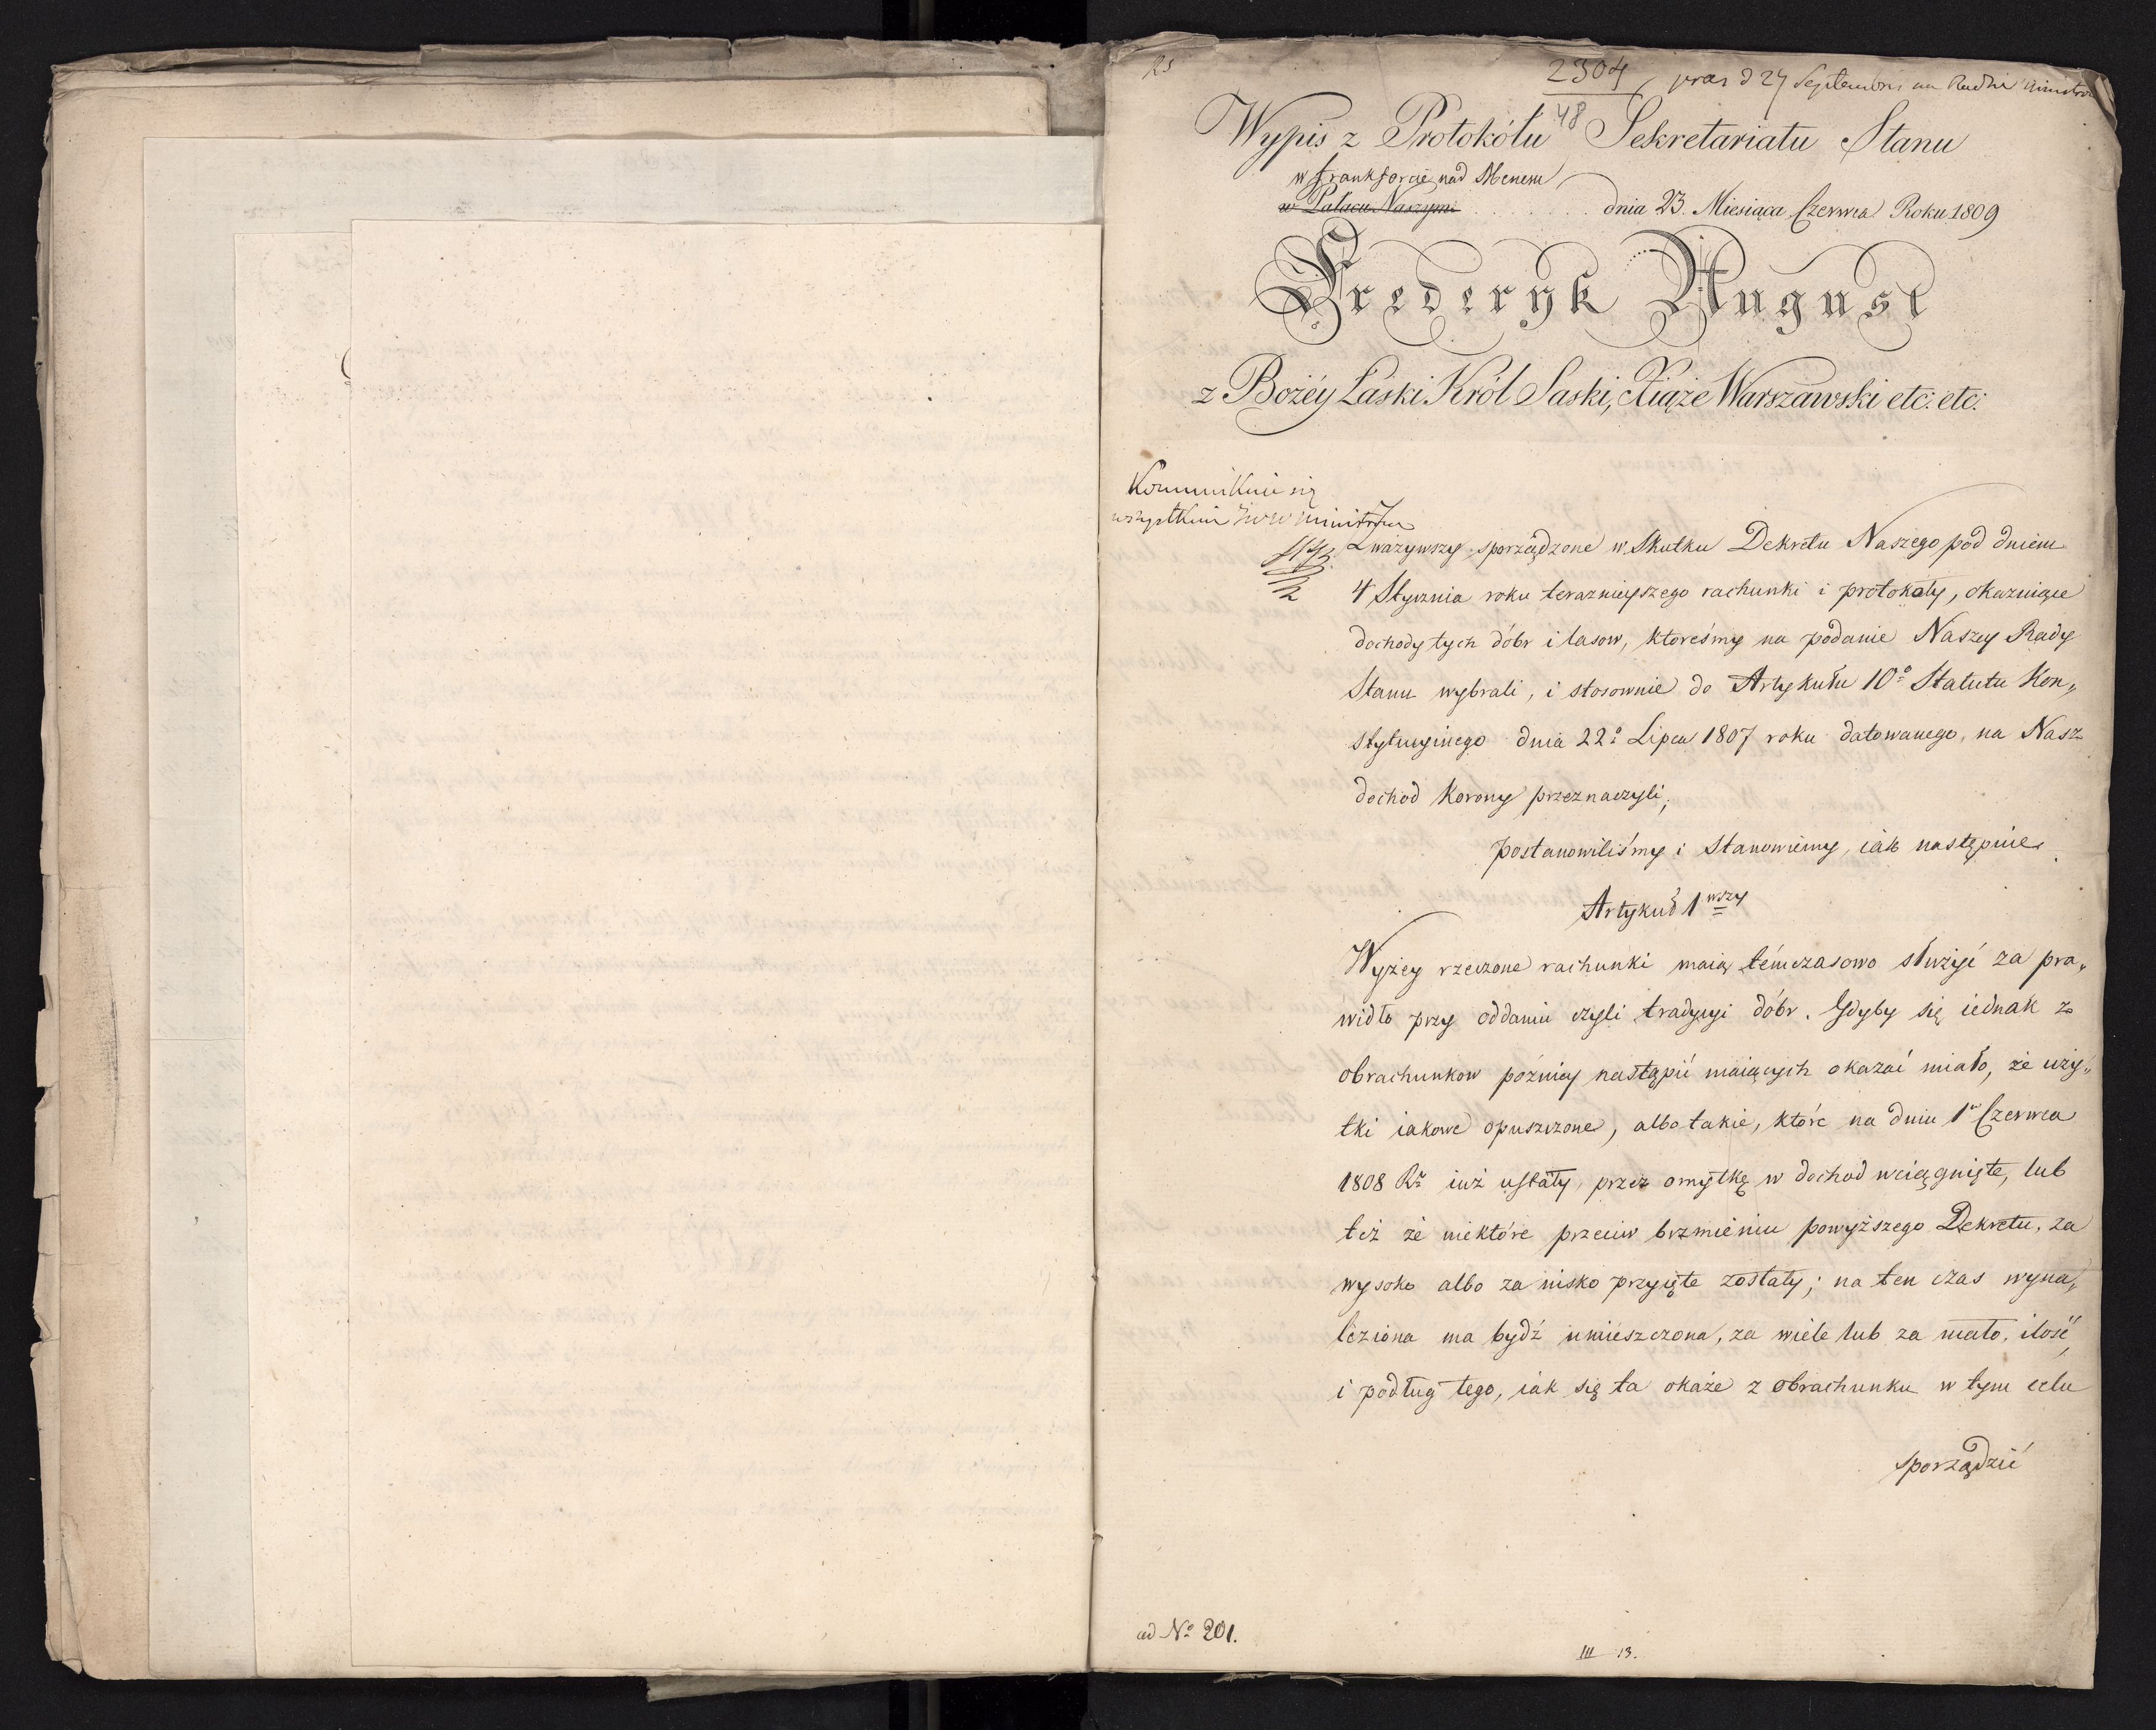 2304
48
Wypis z Protokółu Sekretariatu Stanu
w Frankforcie nad Menem
w Pałacu Naszym dnia 23. Miesiąca Czerwca Roku 1809
Frederyk August
z Bożéy Łaski Król Saski, Xiąże Warszawski etc: etc:
Kommunikuie się
wszystkim JWW Ministrom
Zważywszy sporządzone w Skutku Dekretu Naszego pod dniem
4 Stycznia roku terazniejszego rachunki i protokoły, okazuiące
dochody tych dóbr i lasow, ktoreśmy na podanie Naszey Rady
Stanu wybrali, i stosownie do Artykułu 10º Statutu Kon„
stytucyinego dnia 22º Lipca 1807 roku datowanego, na Nasz
dochod Korony przeznaczyli,
postanowiliśmy i Stanowiemy, iak następuie.
Artykuł 1wszy
Wyżey rzeczone rachunki maią témczasowo służyć za pra„
widło przy oddaniu czyli tradycyi dóbr. Gdyby się iednak z
obrachunkow pózniey nastąpić maiących okazać miało, że uży„
tki iakowe opuszczone, albo takie, które na dniu 1º Czerwca
1808 Rº iuż ustały, przez omyłkę w dochod wciągnięte, lub
też że niektóre przeciw brzmieniu powyższego Dekretu, za
wysoko albo za nisko przyięte zostały; na ten czas wyna„
leziona ma bydź umieszczona, za wiele lub za mało, ilość,
i podług tego, iak się ta okaże z obrachunku w tym celu
sporządzić
ad Nº 201.
III 13.